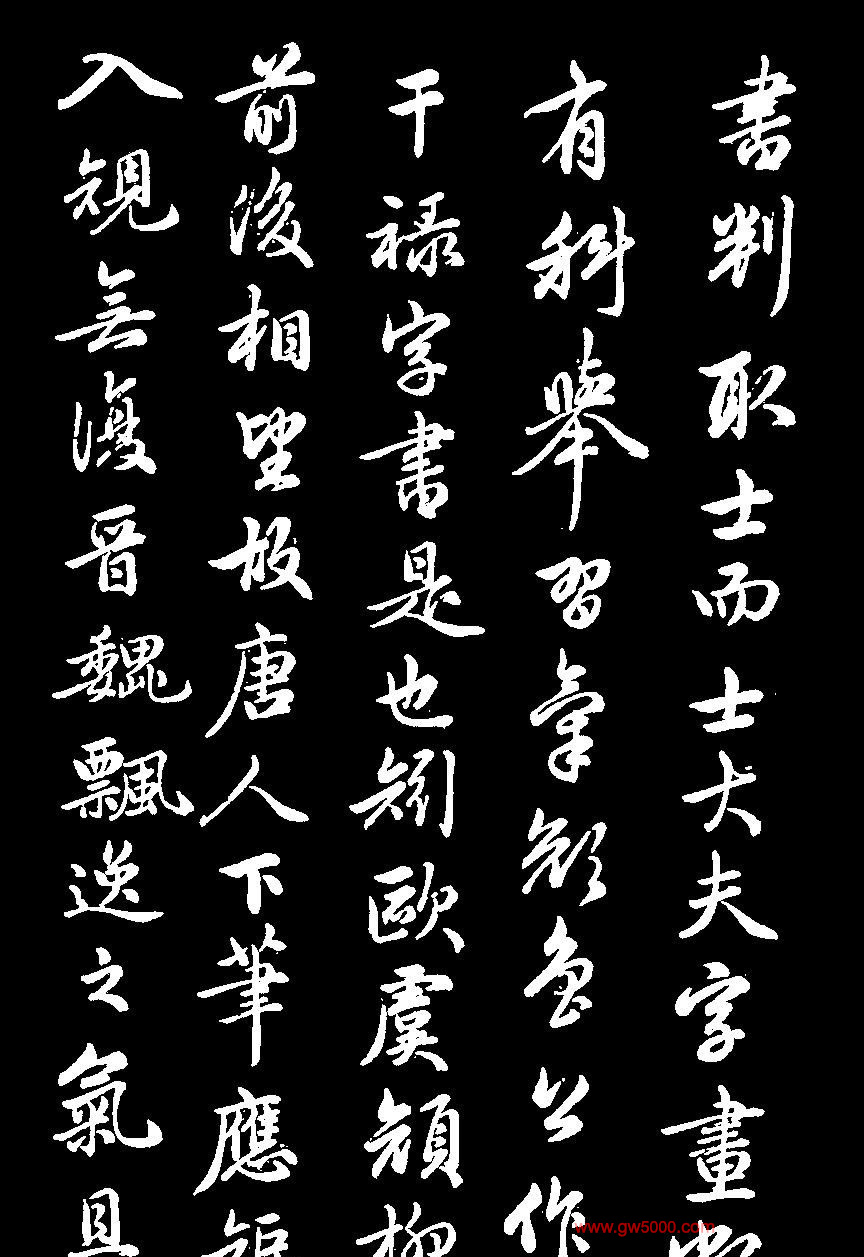 書判取士而士大夫字畫
有科舉習氣顏魯公作
干禄字書是也矧歐虞顏柳
前後相望故唐人下筆應矩
入規無復晉魏飄逸之氣且
www.gw5000.com